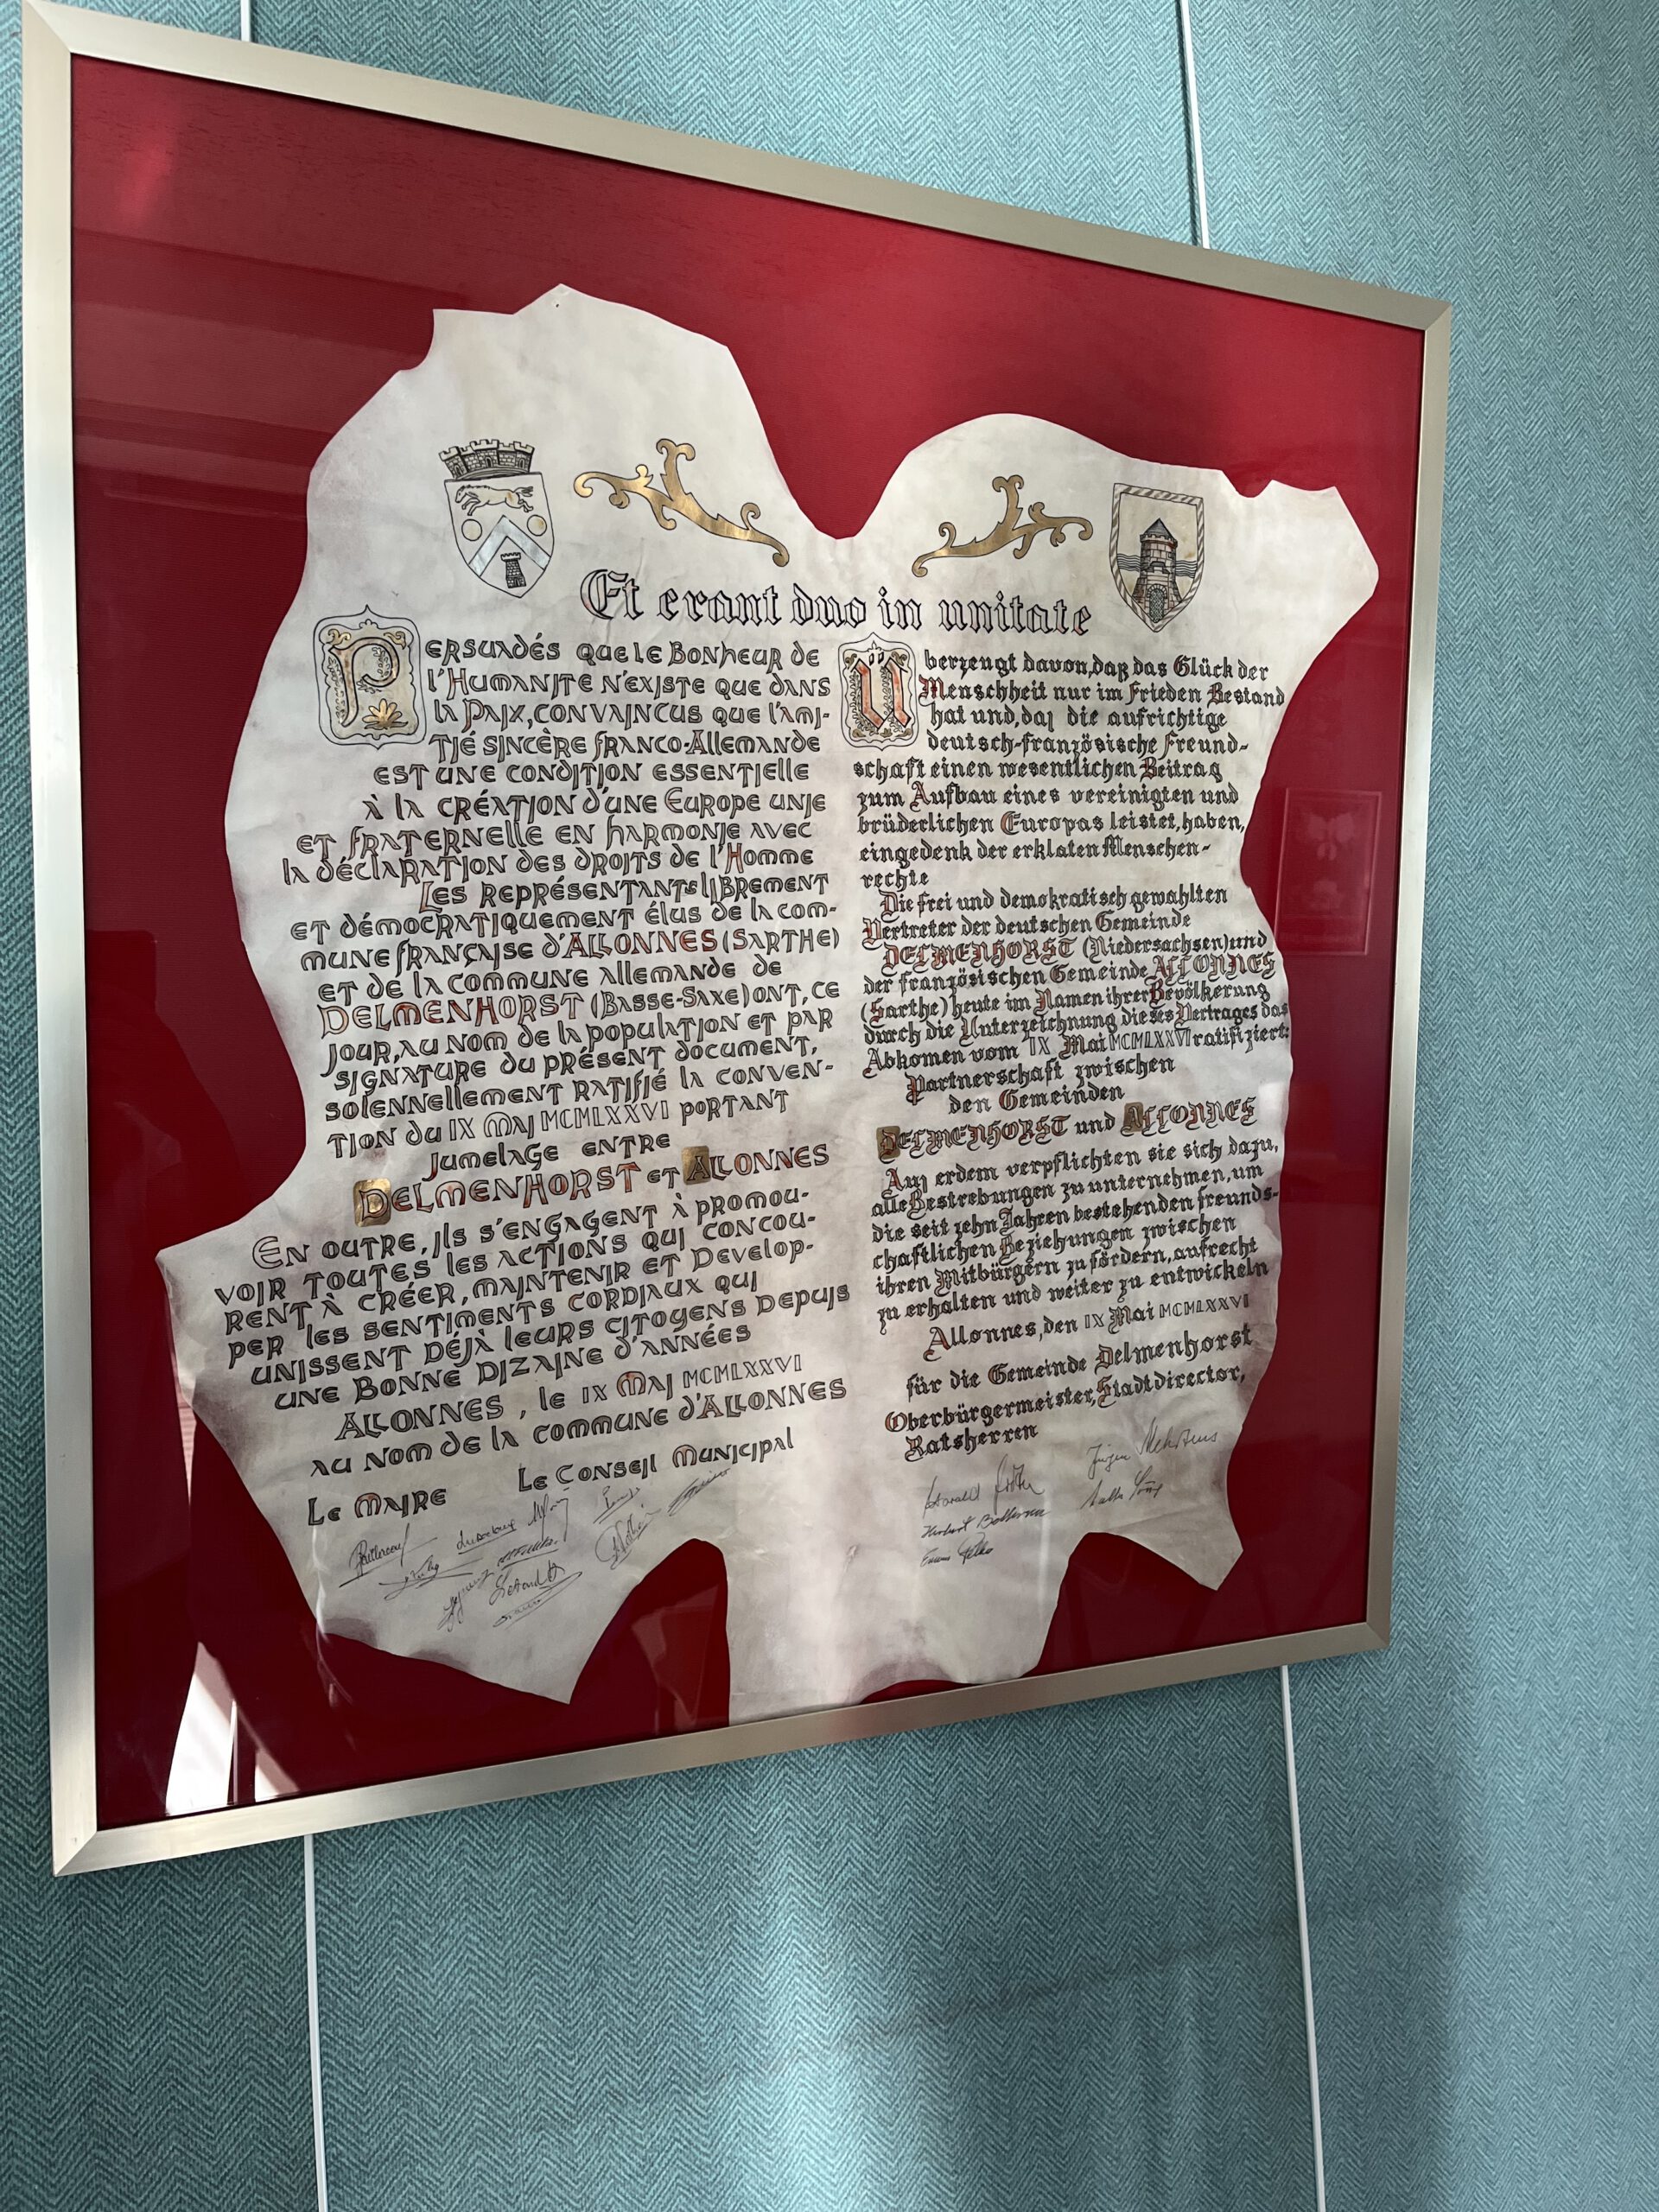 Et erant duo in unitate
PERSUADÉS QUE LE BONHEUR DE
L'HUMANITE N'EXISTE QUE DANS
LA PAIX, CONVAINCUS QUE L'AMI-
TIÉ SINCÈRE FRANCO-ALLEMANDE
EST UNE CONDITION ESSENTIELLE
À LA CRÉATION D'UNE EUROPE UNIE
ET FRATERNELLE EN HARMONIE AVEC
LA DÉCLARATION DES DROITS DE L'HOMME
LES REPRÉSENTANTS LIBREMENT
ET DÉMOCRATIQUEMENT ÉLUS DE LA COM-
MUNE FRANÇAISE D'ALLONNES (SARTHE)
ET DE LA COMMUNE ALLEMANDE DE
DELMENHORST (BASSE-SAXE) ONT, CE
JOUR, AU NOM DE LA POPULATION ET PAR
SIGNATURE DU PRÉSENT DOCUMENT,
SOLENNELLEMENT RATIFIÉ LA CONVEN-
TION DU IX MAI MCMLXXVI PORTANT
JUMELAGE ENTRE
DELMENHORST ET ALLONNES
EN OUTRE, ILS S'ENGAGENT À PROMOU-
VOIR TOUTES LES ACTIONS QUI CONCOU-
RENT À CRÉER, MAINTENIR ET DEVELOP-
PER LES SENTIMENTS CORDIAUX QUI
UNISSENT DÉJÀ LEURS CITOYENS DEPUIS
UNE BONNE DIZAINE D'ANNÉES
ALLONNES, LE IX MAI MCMLXXVI
AU NOM DE LA COMMUNE D'ALLONNES
LE MAIRE LE CONSEIL MUNICIPAL
Überzeugt davon, daß das Glück der
Menschheit nur im Frieden Bestand
hat und, daß die aufrichtige
deutsch-französische Freund-
schaft einen wesentlichen Beitrag
zum Aufbau eines vereinigten und
brüderlichen Europas leistet, haben,
eingedenk der erklaten Menschen-
rechte
Die frei und demokratisch gewahlten
Vertreter der deutschen Gemeinde
DELMENHORST (Niedersachsen) und
der französischen Gemeinde ALLONNES
(Sarthe) heute im Namen ihrer Bevölkerung
durch die Unterzeichnung dieses Vertrages das
Abkomen vom IX Mai MCMLXXVI ratifiziert:
Partnerschaft zwischen
den Gemeinden
DELMENHORST und ALLONNES
Außerdem verpflichten sie sich dazu,
alle Bestrebungen zu unternehmen, um
die seit zehn Jahren bestehenden freunds-
chaftlichen Beziehungen zwischen
ihren Mitbürgern zu fördern, aufrecht
zu erhalten und weiter zu entwickeln
Allonnes, den IX Mai MCMLXXVI
für die Gemeinde Delmenhorst
Oberbürgermeister, Stadtdirector,
Ratsherren
Jürgen Mehrtens
Harald
Herbert
Erwin